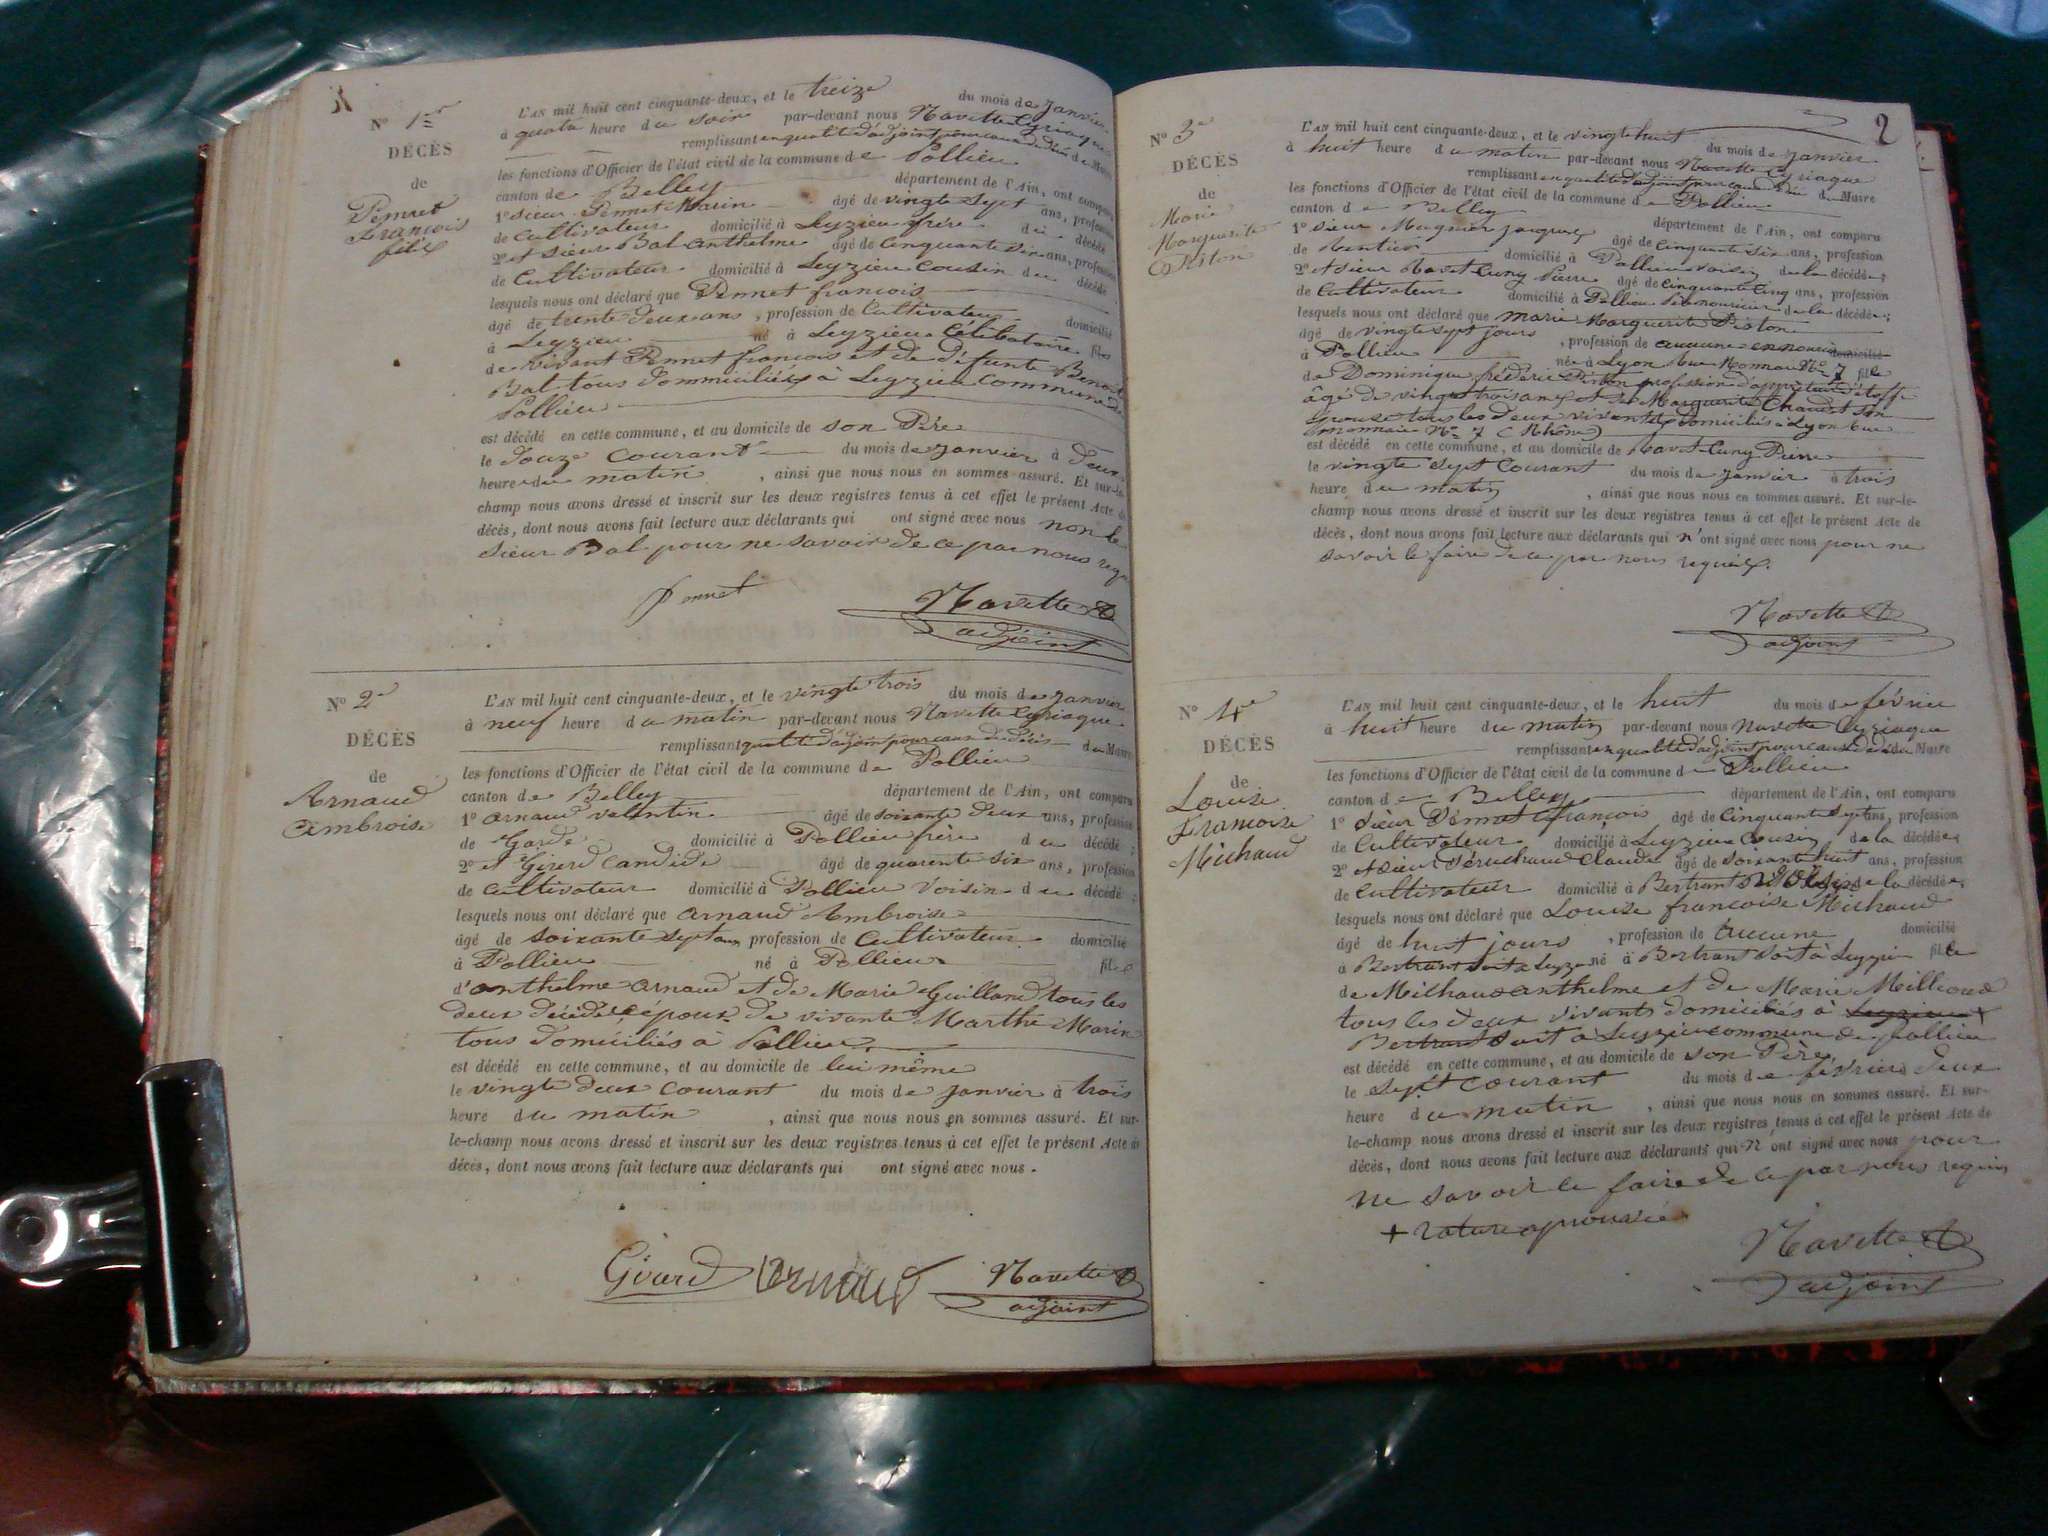 N° 1er
DÉCÈS
de
Pennet
François
félix
L'AN mil huit cent cinquante-deux, et le treize du mois de janvier
à quatre heure du soir par-devant nous Navette Cyriaque
remplissant en qualité d'adjoint pour cause de décès du Maire
les fonctions d'Officier de l'état civil de la commune de Pollieu
canton de Belley département de l'Ain, ont comparu
1° Sieur Pennet Marin âgé de vingt sept ans, profession
de Cultivateur domicilié à Leyzieu frère du décédé
2° et Sieur Bal anthelme âgé de Cinquante six ans, profession
de Cultivateur domicilié à Leyzieu Cousin du décédé
lesquels nous ont déclaré que Pennet françois
âgé de trente deux ans, profession de Cultivateur domicilié
à Leyzieu né à Leyzieu Célibataire fils
de vivant Pennet françois et de défunte
Bal tous dommiciliés à Leyzieu commune de
Pollieu
est décédé en cette commune, et au domicile de son Père
le douze courant du mois de janvier à deux
heure du matin, ainsi que nous nous en sommes assuré. Et sur-le-
champ nous avons dressé et inscrit sur les deux registres tenus à cet effet le présent Acte de
décès, dont nous avons fait lecture aux déclarants qui ont signé avec nous non le
Sieur Bal pour ne savoir de ce par nous requis
Pennet Navette
adjoint
N° 2e
DÉCÈS
de
Arnaud
Ambroise
L'AN mil huit cent cinquante-deux, et le vingte trois du mois de janvier
à neuf heure du matin par-devant nous Navette Cyriaque
remplissant qualité d'adjoint pour cause de décès du Maire
les fonctions d'Officier de l'état civil de la commune de Pollieu
canton de Belley département de l'Ain, ont comparu
1° arnaud valentin âgé de soixante deux ans, profession
de Garde domicilié à Pollieu frère du décédé;
2° et Girerd Candide âgé de quarente six ans, profession
de Cultivateur domicilié à Pollieu Voisin du décédé;
lesquels nous ont déclaré que arnaud Ambroise
âgé de soixante sept ans profession de Cultivateur domicilié
à Pollieu né à Pollieu fils
d'anthelme arnaud et de Marie Guilland tous les
deux décédés époux de vivante Marthe Marin
tous domiciliés à Pollieu
est décédé en cette commune, et au domicile de lui même
le vingte deux courant du mois de janvier à trois
heure du matin, ainsi que nous nous en sommes assuré. Et sur-
le-champ nous avons dressé et inscrit sur les deux registres tenus à cet effet le présent Acte de
décès, dont nous avons fait lecture aux déclarants qui ont signé avec nous.
Girerd Arnaud Navette
adjoint
2
N° 3e
DÉCÈS
de
Marie
Marguerite
Piston
L'AN mil huit cent cinquante-deux, et le vingte huit du mois de janvier
à huit heure du matin par-devant nous Navette Cyriaque
remplissant en qualité d'adjoint pour cause de décès du Maire
les fonctions d'Officier de l'état civil de la commune de Pollieu
canton de Belley département de l'Ain, ont comparu
1° Sieur Mugnier jacques âgé de Cinquante six ans, profession
de Rentier domicilié à Pollieu voisin de la décédée;
2° et sieur Navet-Cuny Pierre âgé de cinquante cinq ans, profession
de Cultivateur domicilié à Pollieu Père nouricier de la décédée;
lesquels nous ont déclaré que marie Marguerite Piston
âgé de vingte sept jours, profession de aucune en nourice domicilié
à Pollieu née à Lyon Rue Monnaie N° 7 fille
de Dominique frédéric Piston profession d'appreteur d'étoffe
âgé de vingt trois ans et de Marguerite Chaudet son
épouse tous les deux vivants domiciliés à Lyon Rue
monnaie N° 7 (Rhône)
est décédé en cette commune, et au domicile de Navet-Cuny Pierre
le vingte sept courant du mois de janvier à trois
heure du matin, ainsi que nous nous en sommes assuré. Et sur-le-
champ nous avons dressé et inscrit sur les deux registres tenus à cet effet le présent Acte de
décès, dont nous avons fait lecture aux déclarants qui n'ont signé avec nous pour ne
savoir le faire de ce par nous requis.
Navette
adjoint
N° 4e
DÉCÈS
de
Louise
Francoise
Michaud
L'AN mil huit cent cinquante-deux, et le huit du mois de février
à huit heure du matin par-devant nous Navette Cyriaque
remplissant en qualité d'adjoint pour cause de décès du Maire
les fonctions d'Officier de l'état civil de la commune de Pollieu
canton de Belley département de l'Ain, ont comparu
1° Sieur Pennet françois âgé de Cinquante sept ans, profession
de Cultivateur domicilié à Leyzieu Cousin de la décédée
2° et Sieur Péruchaud Claude âgé de soixante huit ans, profession
de Cultivateur domicilié à Bertrant de la décédée,
lesquels nous ont déclaré que Louise francoise Michaud
âgé de huit jours, profession de aucune domicilié
à Bertrant soit à Leyzieu né à Bertrant soit à Leyzieu fille
de Michaud anthelme et de Marie Millioud
tous les deux vivants domiciliés à Leyzieu +
Bertrant soit à Leyzieu commune de pollieu
est décédé en cette commune, et au domicile de son Père
le sept courant du mois de février deux
heure du matin, ainsi que nous nous en sommes assuré. Et sur-
le-champ nous avons dressé et inscrit sur les deux registres tenus à cet effet le présent Acte de
décès, dont nous avons fait lecture aux déclarants qui n ont signé avec nous pour
ne savoir le faire de ce par nous requis
+ rature aprouvée
Navette
adjoint